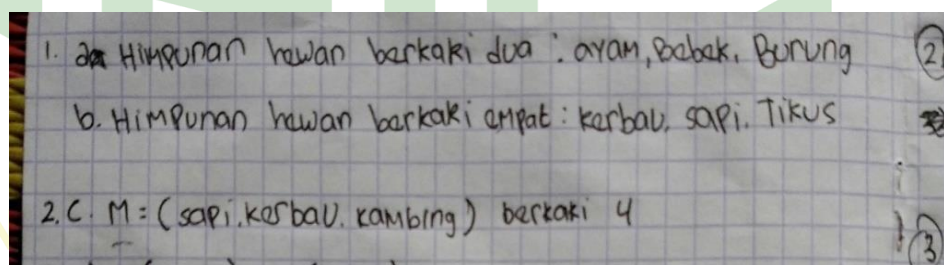 1. a Himpunan hewan berkaki dua : ayam, Bebek, Burung 2
b. Himpunan hewan berkaki empat : kerbau, sapi. Tikus
2. C. M = (sapi. kerbau. kambing) berkaki 4
3